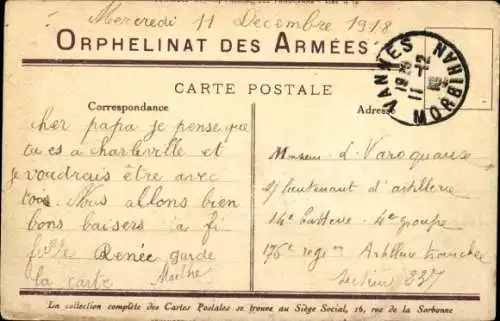 Mercredi 11 Décembre 1918
ORPHELINAT DES ARMÉES
CARTE POSTALE
Correspondance
Adresse
VANNES
MORBIHAN
19 25
11 -12
cher papa je pense que
tu es a charleville et
je voudrais être avec
toi. Nous allons bien
bons baisers ta fi
fille Renée garde
la carte
Monsieur L. Varoquaux
s/lieutenant d'artillerie
14e batterie 4e groupe
176e regim Artillerie tranchée
secteur 227
La collection complète des Cartes Postales se trouve au Siège Social, 16, rue de la Sorbonne